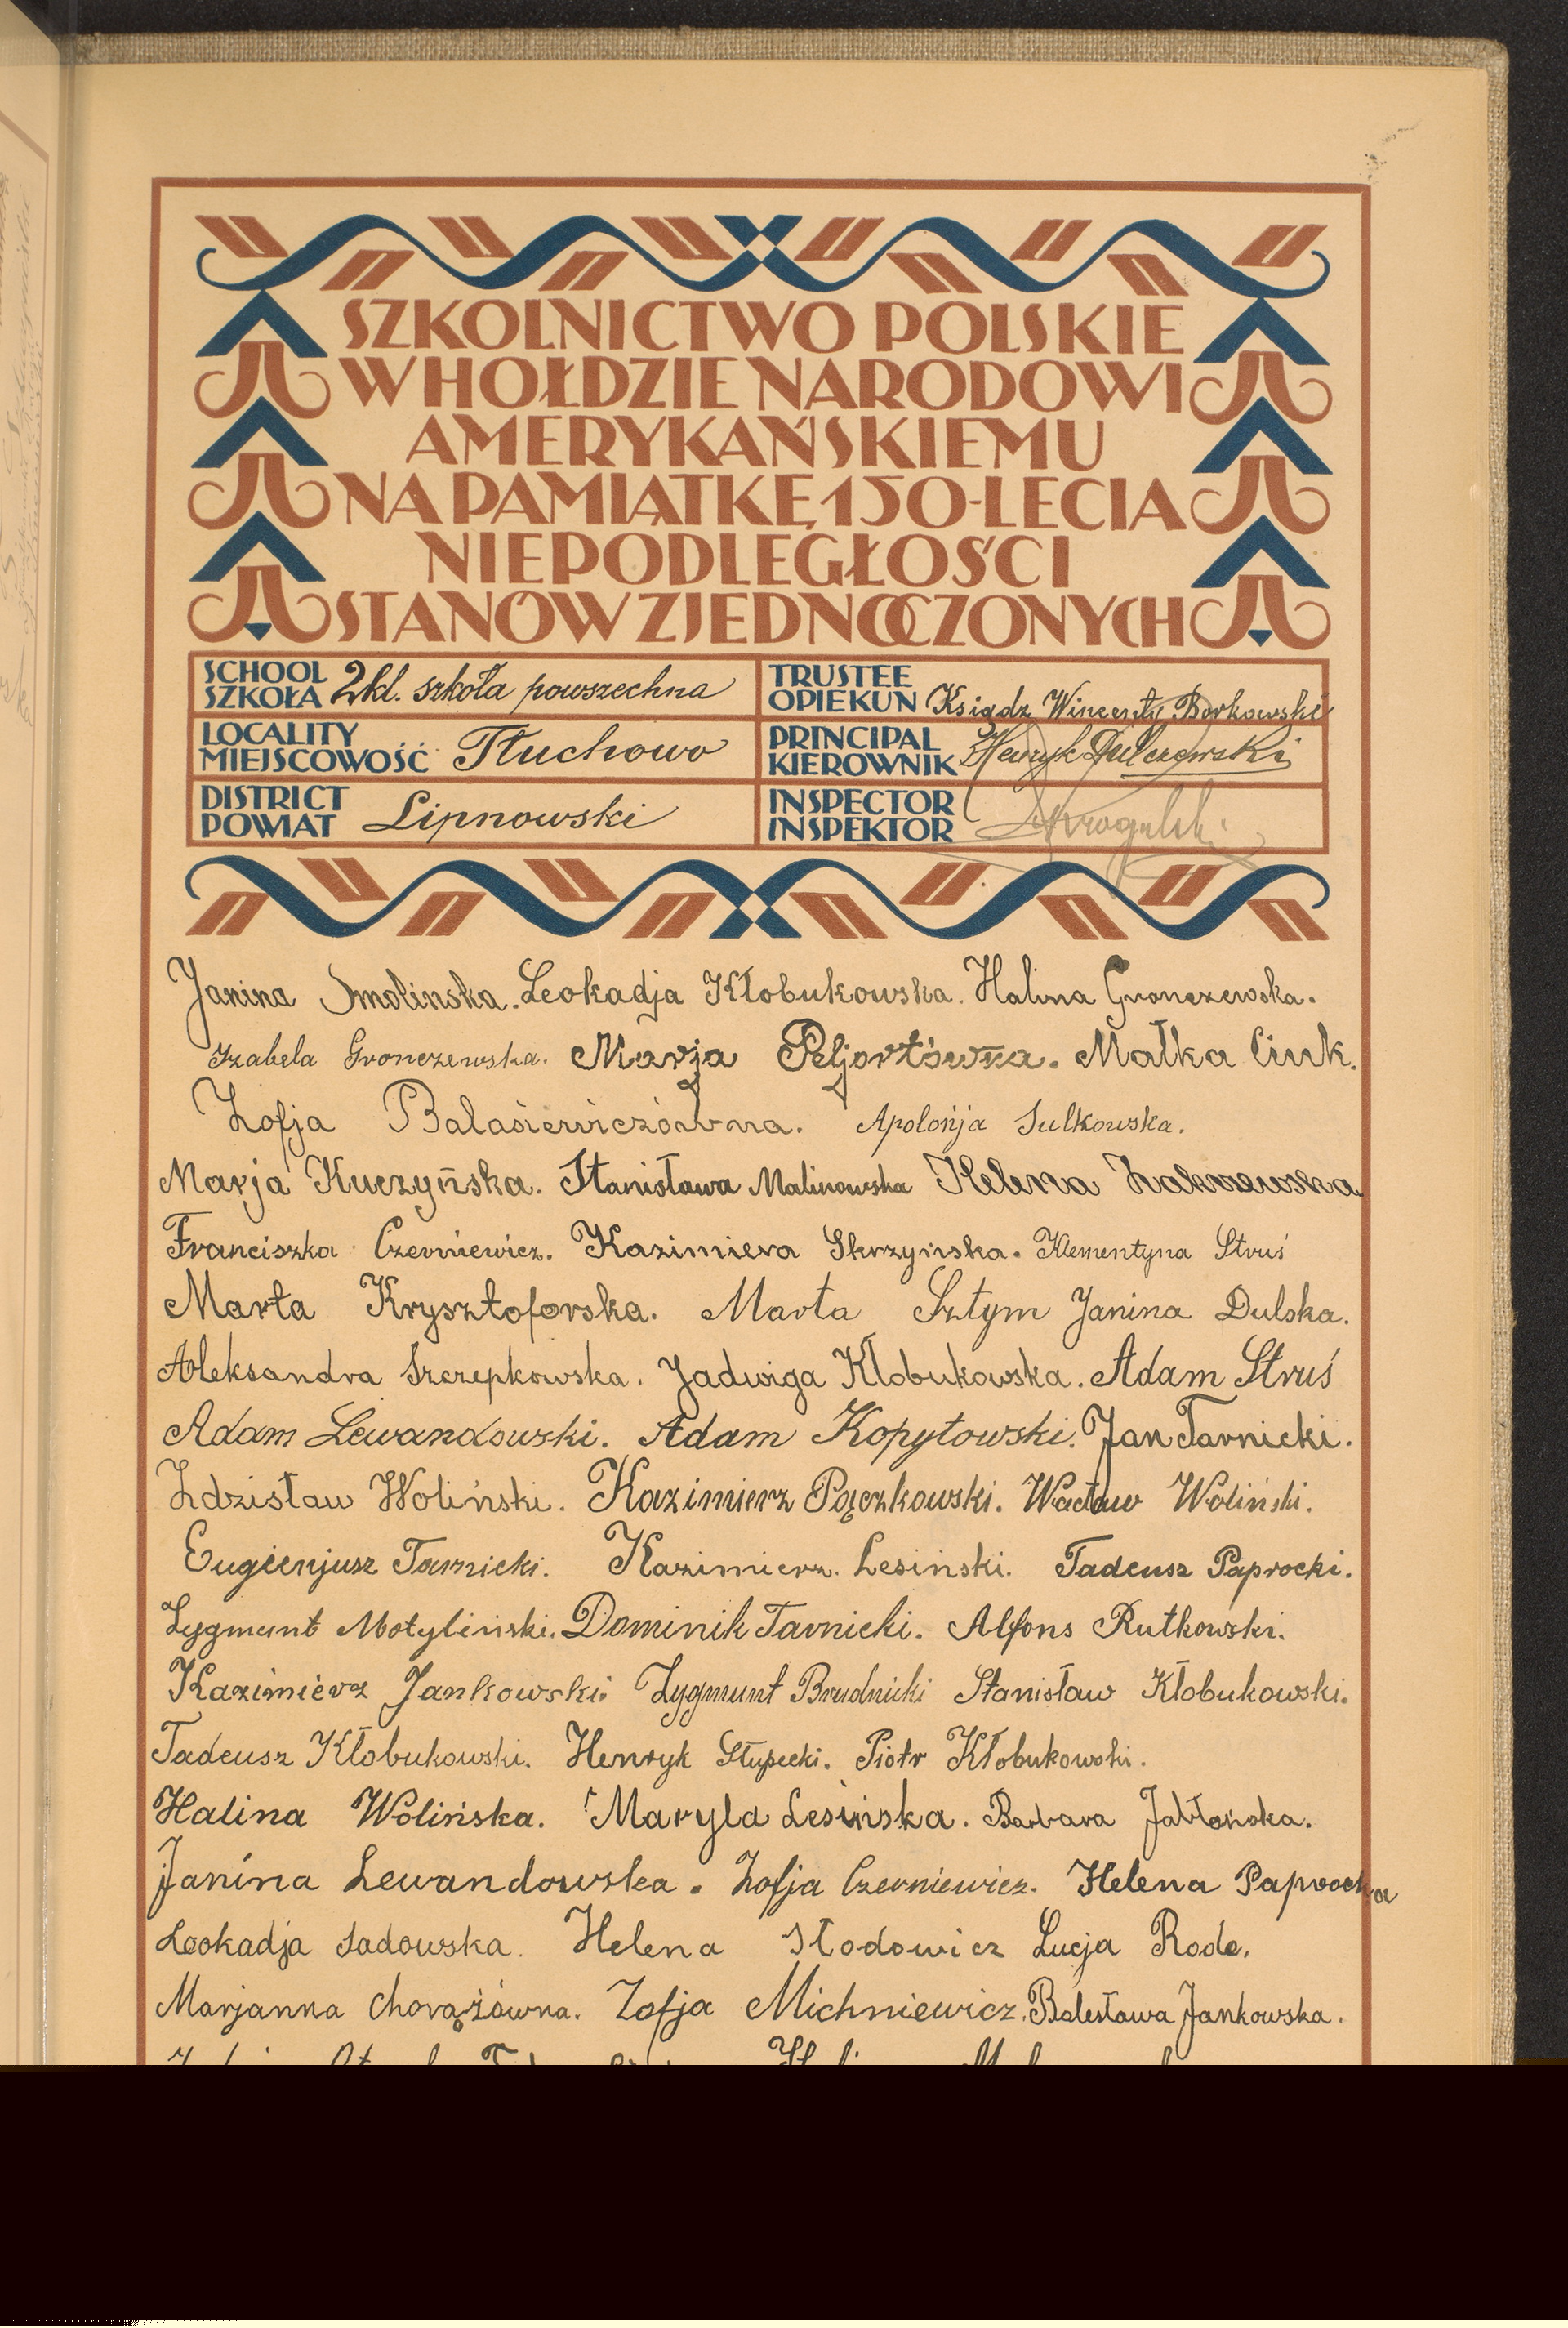 SZKOLNICTWO POLSKIE
W HOŁDZIE NARODOWI
AMERYKAŃSKIEMU
NA PAMIĄTKĘ 150-LECIA
NIEPODLEGŁOŚCI
STANÓW ZJEDNOCZONYCH
SCHOOL
SZKOŁA 2 kl. szkoła powszechna
TRUSTEE
OPIEKUN Ksiądz Wincenty Borkowski
LOCALITY
MIEJSCOWOŚĆ Tłuchowo
PRINCIPAL
KIEROWNIK Henryk
DISTRICT
POWIAT Lipnowski
INSPECTOR
INSPEKTOR
Janina Smolinska. Leokadja Kłobukowska. Halina Gronczewska.
Izabela Gronczewska. Marja Peljortówna. Małka Ciuk.
Zofja Balasiewiczówna. Apolonja Sulkowska.
Marja Kuczyńska. Stanisława Malinowska Helena
Franciszka Czerniewicz. Kazimiera Skrzyńska. Klementyna Struś
Marta Krysztoforska. Marta Sztym Janina Dulska.
Aleksandra Szczepkowska. Jadwiga Kłobukowska. Adam Struś
Adam Lewandowski. Adam Kopytowski. Jan Tarnicki.
Zdzisław Woliński. Kazimierz Pączkowski. Wacław Woliński.
Eugienjusz Tarnicki. Kazimierz. Lesiński. Tadeusz Paprocki.
Zygmunt Motyliński. Dominik Tarnicki. Alfons Rutkowski.
Kazimierz Jankowski. Zygmunt Brudnicki Stanisław Kłobukowski.
Tadeusz Kłobukowski. Henryk Słupecki. Piotr Kłobukowski.
Halina Wolińska. Maryla Lesińska. Barbara Jabłońska.
Janina Lewandowska. Zofja Czerniewicz. Helena Paprocka
Leokadja Sadowska. Helena Słodowicz Lucja Rode.
Marjanna Chorążówna. Zofja Michniewicz. Bolesława Jankowska.